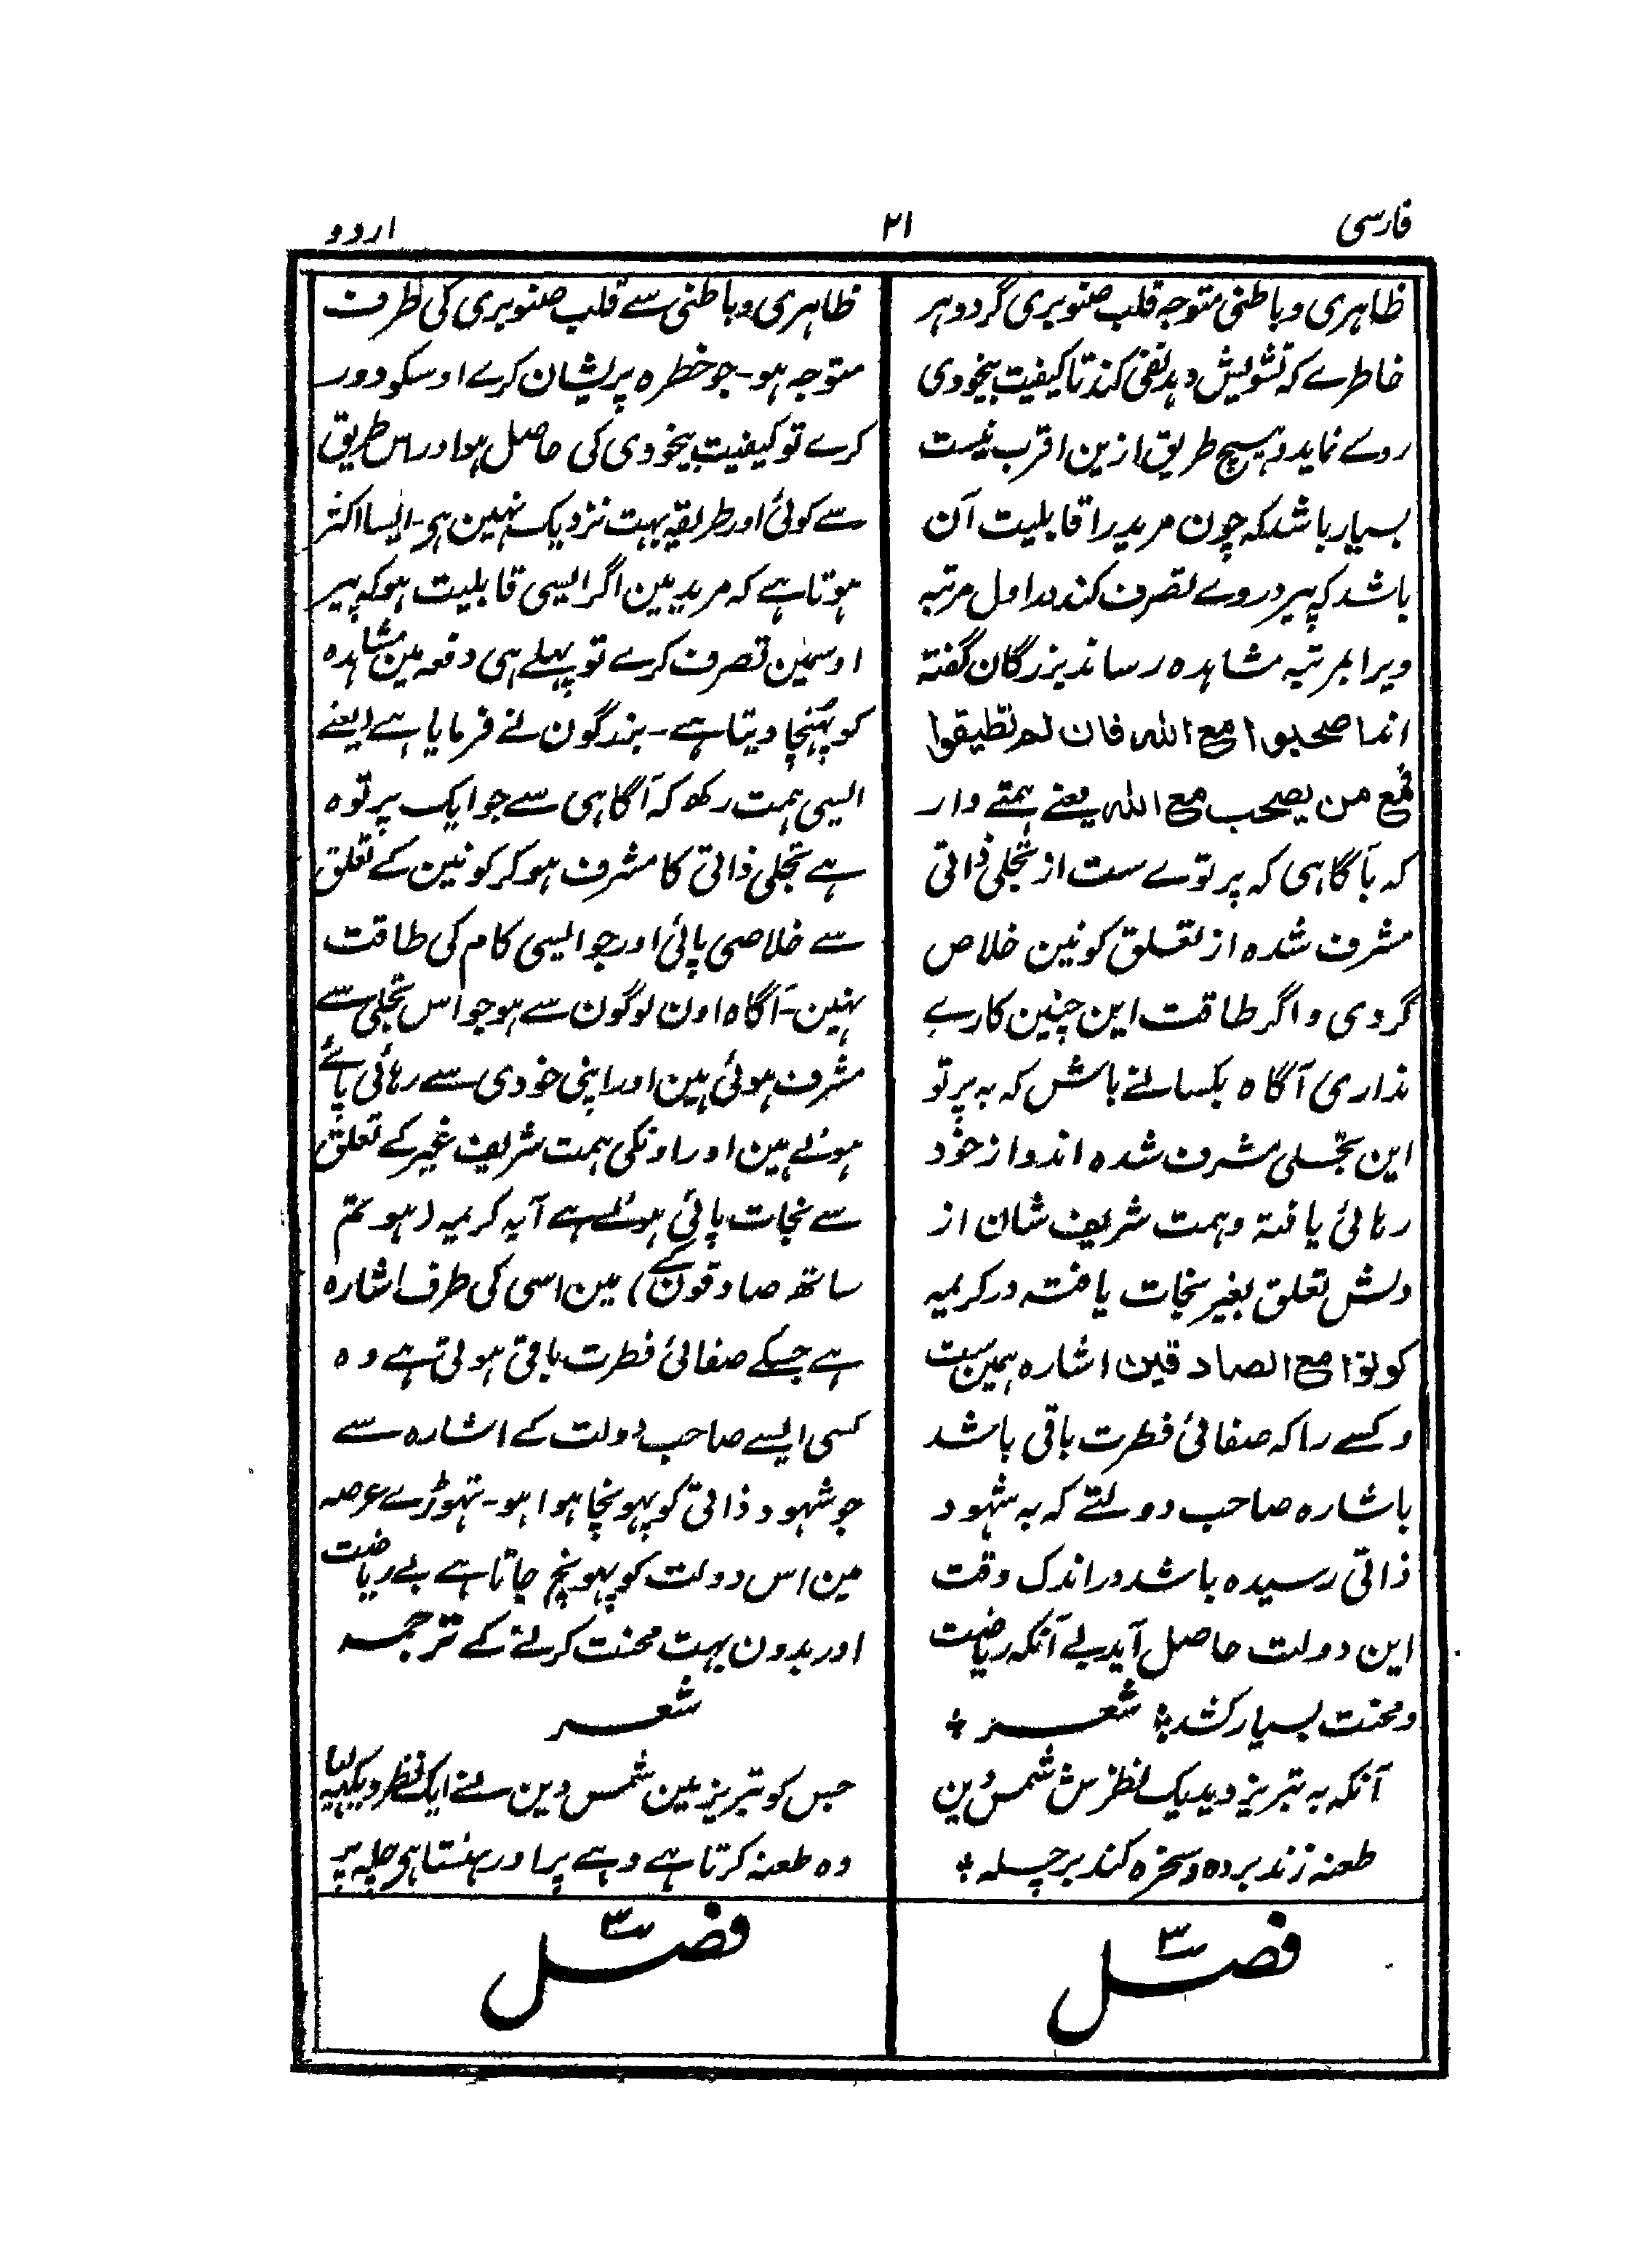 فارسی
۲۱
اردو
ظاہری و باطنی متوجہ قلب صنوبری گردد و ہر
خاطرے کہ تشویش دہد نفی کند تا کیفیت بیخودی
روے نماید و ہیچ طریق ازین اقرب نیست
بسیار باشد کہ چون مرید را قابلیت آن
باشد کہ پیر در وے تصرف کند در اول مرتبہ
ویرا بمرتبہ مشاہدہ رساند بزرگان گفتہ
اند اصحبوا مع اللہ فان لم تطیقوا
فمع من یصحب مع اللہ یعنے ہمتے دار
کہ بآگاہی کہ پرتوے ست از تجلی ذاتی
مشرف شدہ از تعلق کونین خلاص
گردی و اگر طاقت این چنین کارے
نداری آگاہ بکسانے باش کہ بہ پرتو
این تجلی مشرف شدہ اند و از خود
رہائی یافتہ و ہمت شریف شان از
دلش تعلق بغیر نجات یافتہ در کریمہ
کونوا مع الصادقین اشارہ ہمین ست
و کسے را کہ صفائی فطرت باقی باشد
باشارہ صاحب دولتے کہ بہ شہود
ذاتی رسیدہ باشد در اندک وقت
این دولت حاصل آید بے آنکہ ریاضت
و محنت بسیار کشد ؞ شعر ؞
آنکہ بہ تبریز دید یک نظرش شمس دین
طعنہ زند بر دہ و سخرہ کند بر چلہ ؞
فصل ۳
ظاہری و باطنی سے قلب صنوبری کی طرف
متوجہ ہو۔ جو خطرہ پریشان کرے اوسکو دور
کرے تو کیفیت بیخودی کی حاصل ہو اور اس طریق
سے کوئی اور طریقہ بہت نزدیک نہین ہی۔ ایسا اکثر
ہوتا ہے کہ مرید مین اگر ایسی قابلیت ہو کہ پیر
اوسمین تصرف کرے تو پہلے ہی دفعہ مین مشاہدہ
کو پہنچا دیتا ہے۔ بزرگون نے فرمایا ہے یعنے
ایسی ہمت رکھ کہ آگاہی سے جو ایک پرتوہ
ہے تجلی ذاتی کا مشرف ہو کر کونین کے تعلق
سے خلاصی پائی اور جو ایسی کام کی طاقت
نہین۔ آگاہ اون لوگون سے ہو جو اس تجلی سے
مشرف ہوئی ہین اور اپنی خودی سے رہائی پائے
ہوئے ہین اور اونکی ہمت شریف غیر کے تعلق
سے نجات پائی ہوئے ہے آیہ کریمہ (ہو تم
ساتھ صادقون کے) مین اسی کی طرف اشارہ
ہے جسکے صفائی فطرت باقی ہوتی ہے وہ
کسی ایسے صاحب دولت کے اشارہ سے
جو شہود ذاتی کو پہونچا ہوا ہو۔ تہوڑے عرصہ
مین اس دولت کو پہونچ جاتا ہے بے ریاضت
اور بدون بہت محنت کرنے کے ترجمہ
شعر
جس کو تبریز مین شمس دین نے ایک نظر دیکہہ لیا
وہ طعنہ کرتا ہے دہے پر اور ہنستا ہی چلہ پر
فصل ۳